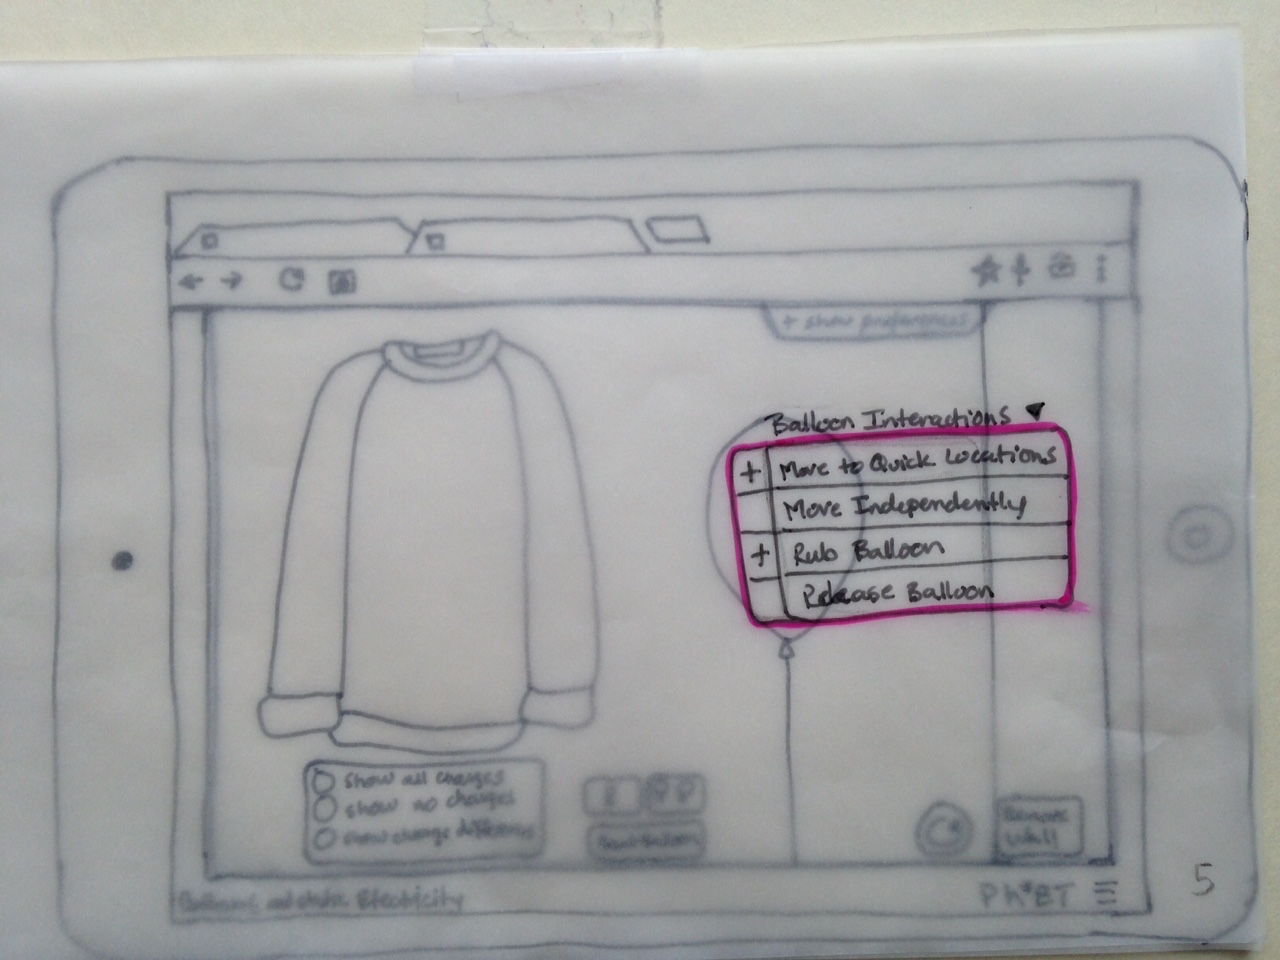 + show preferences
Balloon Interactions
+ Move to Quick Locations
Move Independently
+ Rub Balloon
Release Balloon
show all charges
show no charges
show charge differences
Remove
Wall
Balloons and static Electricity
PhET
5